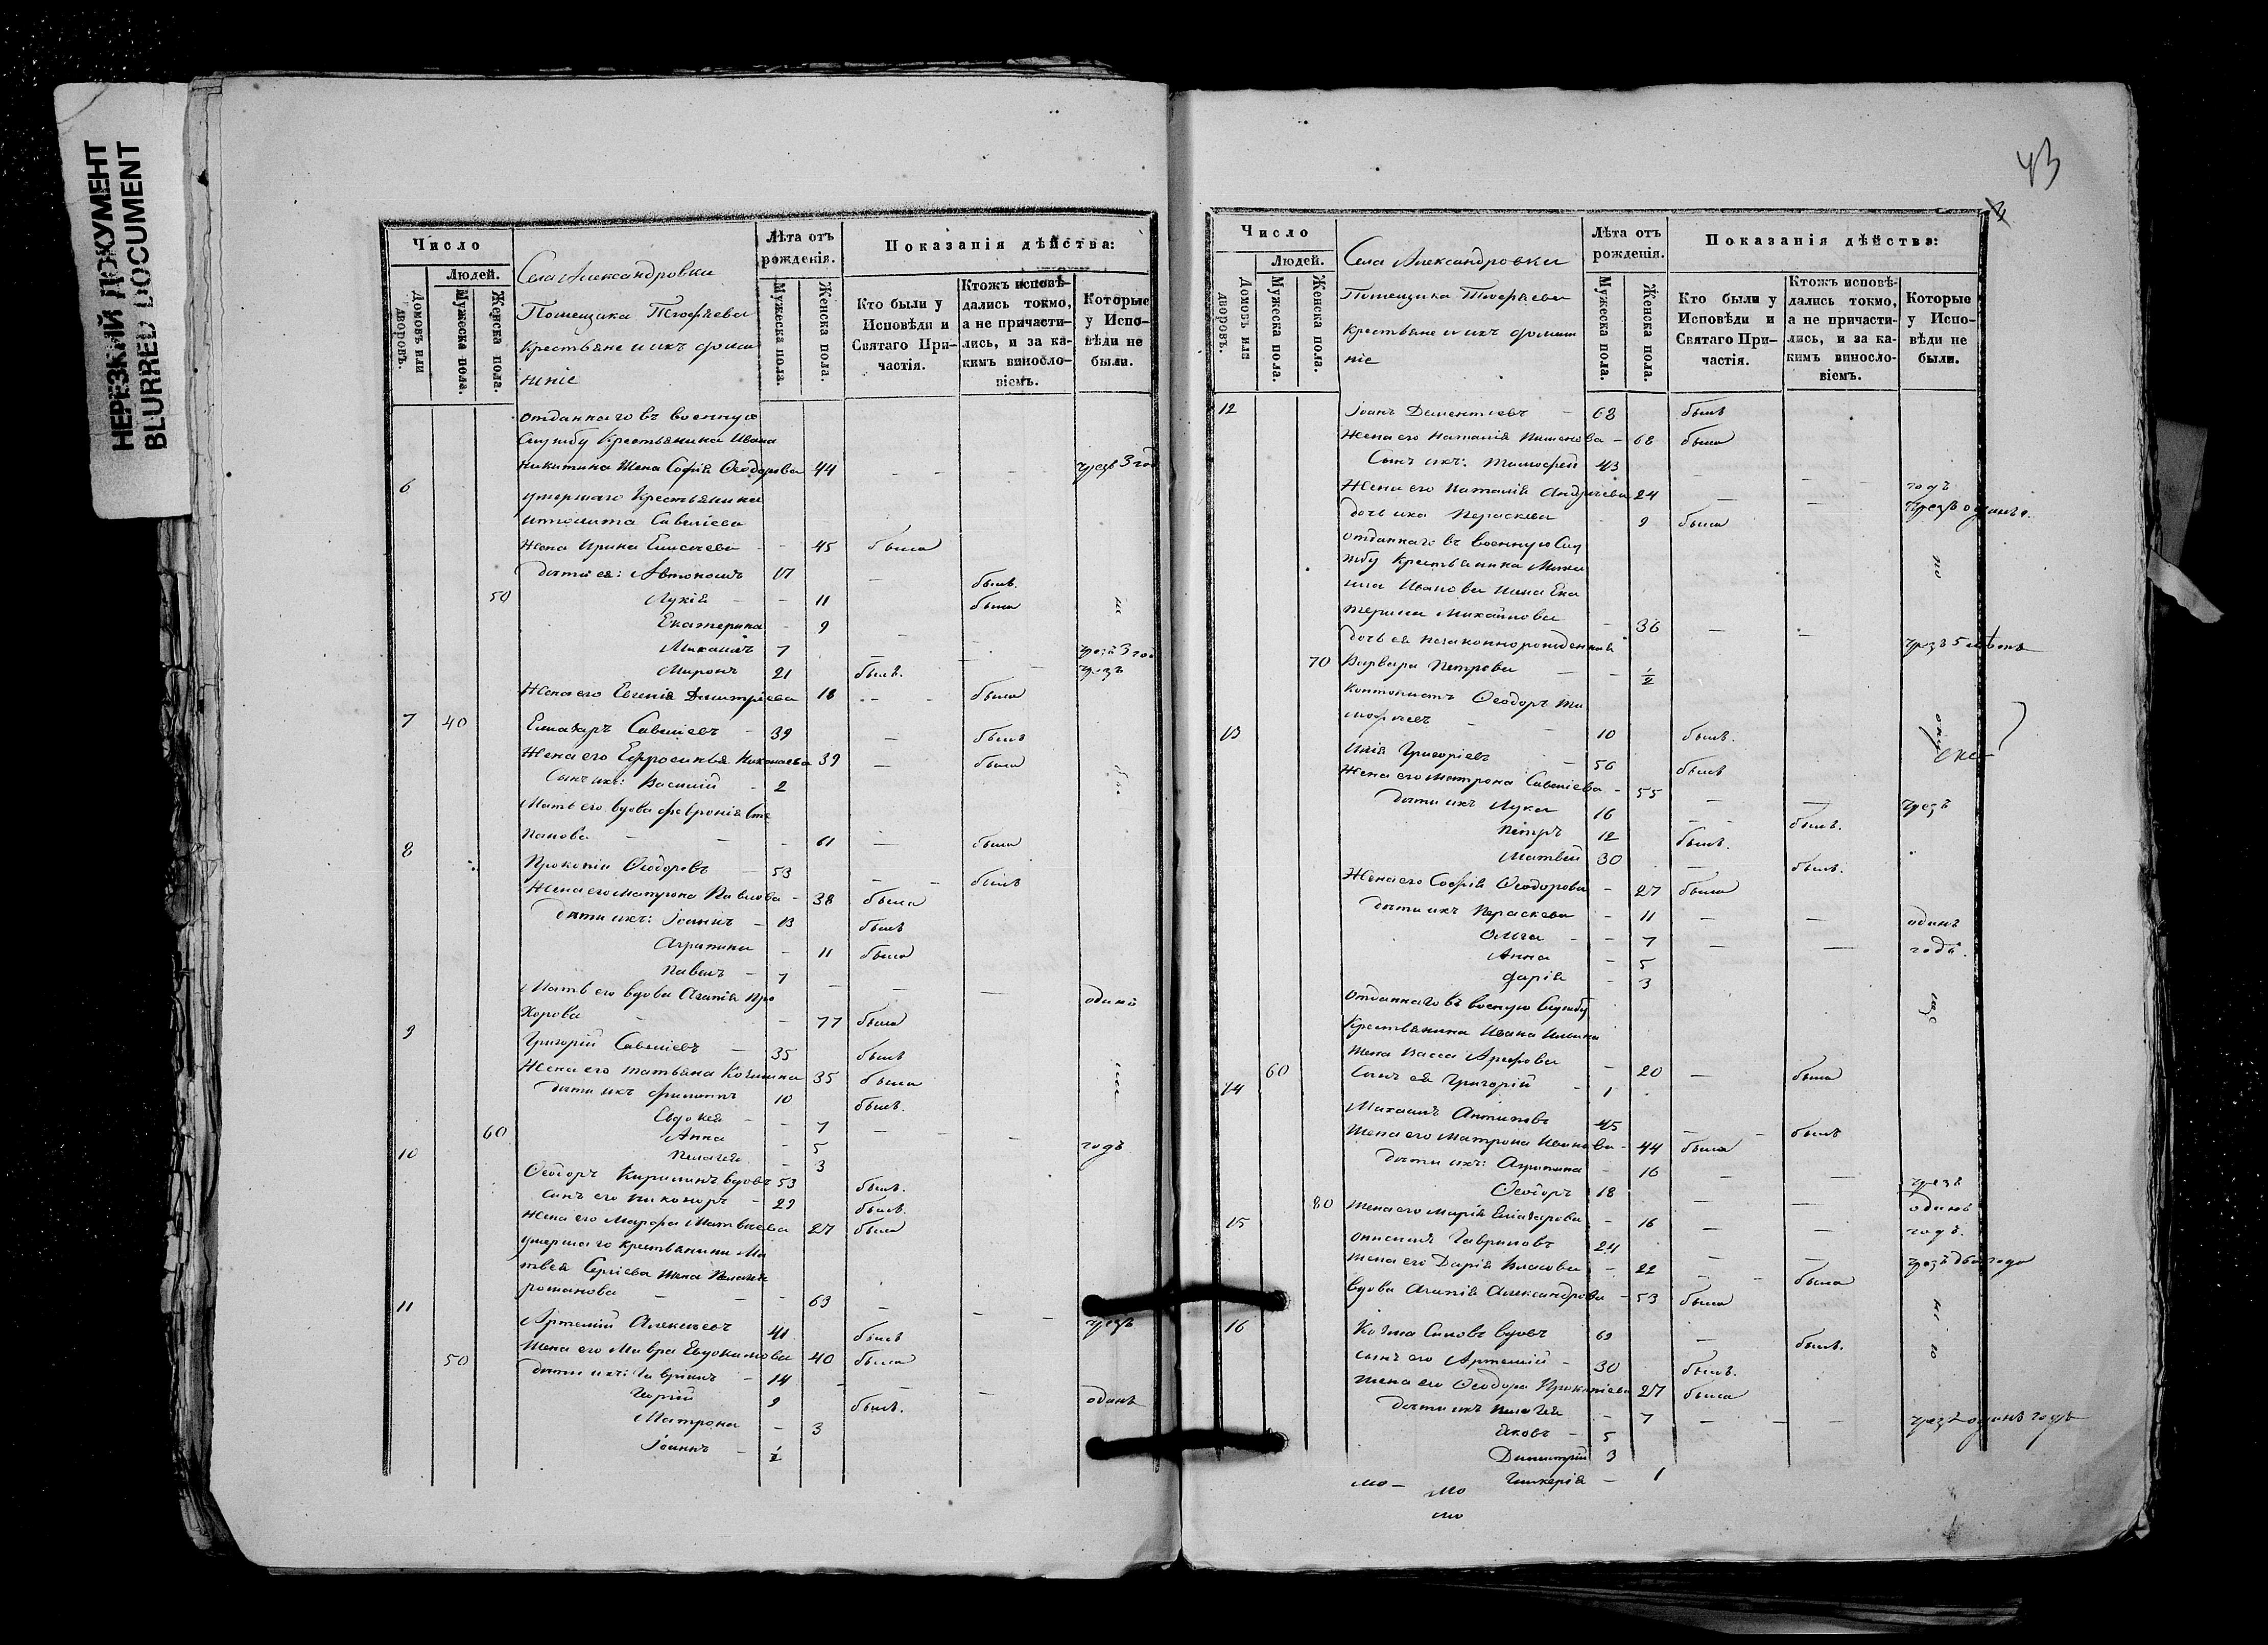 НЕРЕЗКИЙ ДОКУМЕНТ
BLURRED DOCUMENT
Число
Людей.
Домовъ или дворовъ.
Мужеска пола.
Женска пола.
Села Александровки
Помещика
крестьяне и ихъ
Лѣта отъ рожденія.
Мужеска пола.
Женска пола.
Показанія дѣйства:
Кто были у Исповѣди и Святаго При-
частія.
Ктожъ исповѣ-
дались токмо,
а не причасти-
лись, и за ка-
кимъ виносло-
віемъ.
Которые
у Испо-
вѣди не
были.
отданнаго въ военную
службу Крестьянина Ивана
Никитина жена Софія Ѳеодорова 44 — — — чрезъ 3 год
6 умершаго Крестьянина
Ипполита Савеліева
жена Ирина Елисеева - 45 была
дѣти ея: Автономъ 17 — былъ.
50 Лукія - 11 была
Екатерина - 9 —
Михаилъ 7 — — чрезъ 3 год
Миронъ 21 былъ. — чрезъ
Жена его Евгенія Димитріева 18 - - была
7 40 Елиазаръ Савеліевъ - 39 — былъ
Жена его Ефросинья Николаева 39 — была
Сынъ ихъ: Василій - 2
Мать его вдова Февронія Сте
панова — — - 61 — была
8 Прокопій Ѳеодоровъ — 53 — - былъ
Жена его Матрона Павлова - 38 была
дѣти ихъ: Іоаннъ - 13 былъ
Агрипина - 11 была
Павелъ - 7 — — —
Мать его вдова Агапія Про одинъ
хорова — - 77 была
9 Григорій Савеліевъ — 35 былъ
Жена его Татьяна Козмина 35 была
дѣти ихъ Филиппъ 10 былъ.
Евдокія - - 7 — —
60 Анна - 5 — годъ
10 Пелагея - 3
Ѳеодоръ Кириллинъ вдовъ 53 былъ.
сынъ его Никаноръ - 29 былъ.
Жена его Марфа Матвѣева 27 была
умершаго крестьянина Ма
твея Сергіева жена Пелагея
романова — - - 63 — — —
11 Артемій Алексѣевъ 41 былъ чрезъ
жена его Мавра Евдокимова 40 была
50 дѣти ихъ: Гавріилъ - 14 - — —
Георгій 9 былъ. одинъ
Матрона - 3
Іоаннъ - 1/2
43
Число
Людей.
Домовъ или дворовъ.
Мужеска пола.
Женска пола.
Села Александровки
Помещика
крестьяне и ихъ
Лѣта отъ рожденія.
Мужеска пола.
Женска пола.
Показанія дѣйства:
Кто были у
Исповѣди и
Святаго При-
частія.
Ктожъ исповѣ-
дались токмо,
а не причасти-
лись, и за ка-
кимъ виносло-
віемъ.
Которые
у Испо-
вѣди не
были.
12 Іоанъ Дементіевъ - 68 былъ
Жена его Наталія Пименова - 68 была
Сынъ ихъ: Тимофей 43 — - — годъ
Жена его Наталія Андреева 24 — — чрезъ
дочь ихъ Параскева - 9 была
отданнаго въ военную Слу
жбу Крестьянина Миха
ила Иванова жена Ека
терина Михайлова - 36 — — чрезъ 5 лѣтъ
дочь ея незаконнорожденная
70 Варвара Петрова — - 1/2
Ѳеодоръ Ти
мофеевъ - - 10 былъ.
13 Илія Григоріевъ — 56 былъ
Жена его Матрона Савеліева - 55 — — чрезъ
дѣти ихъ Лука 16 - - былъ.
Петръ 12 былъ.
Матвей 30 - — былъ.
Жена его Софія Ѳеодорова - 27 была
дѣти ихъ Параскева - 11 — — одинъ
Ольга - - 7 — — годъ.
Анна - 5
Дарія - 3
отданнаго въ военую Службу
Крестьянина Ивана Ильина
жена Васса Арефова - 20 — была
60 Сынъ ея Григорій - 1
14 Михаилъ Антиповъ 45 — - былъ
Жена его Матрона Иванова - 44 была
дѣти ихъ: Агрипина - 16 — — чрезъ
Ѳеодоръ 18 — — одинъ
80 Жена его Марія Елиазарова - 16 — — годъ.
15 Онисимъ Гавриловъ 24 — — чрезъ два года
жена его Дарія Власова - 22 - - была
вдова Агапія Александрова - 53 была
16 Козма вдовъ 69 — былъ.
сынъ его Артемій - 30 былъ.
жена его Ѳеодора Прокопіева 27 была
дѣти ихъ Пелагея - 7 — - — чрезъ одинъ годъ
Яковъ - 5
Димитрій 3
Гликерія - 1